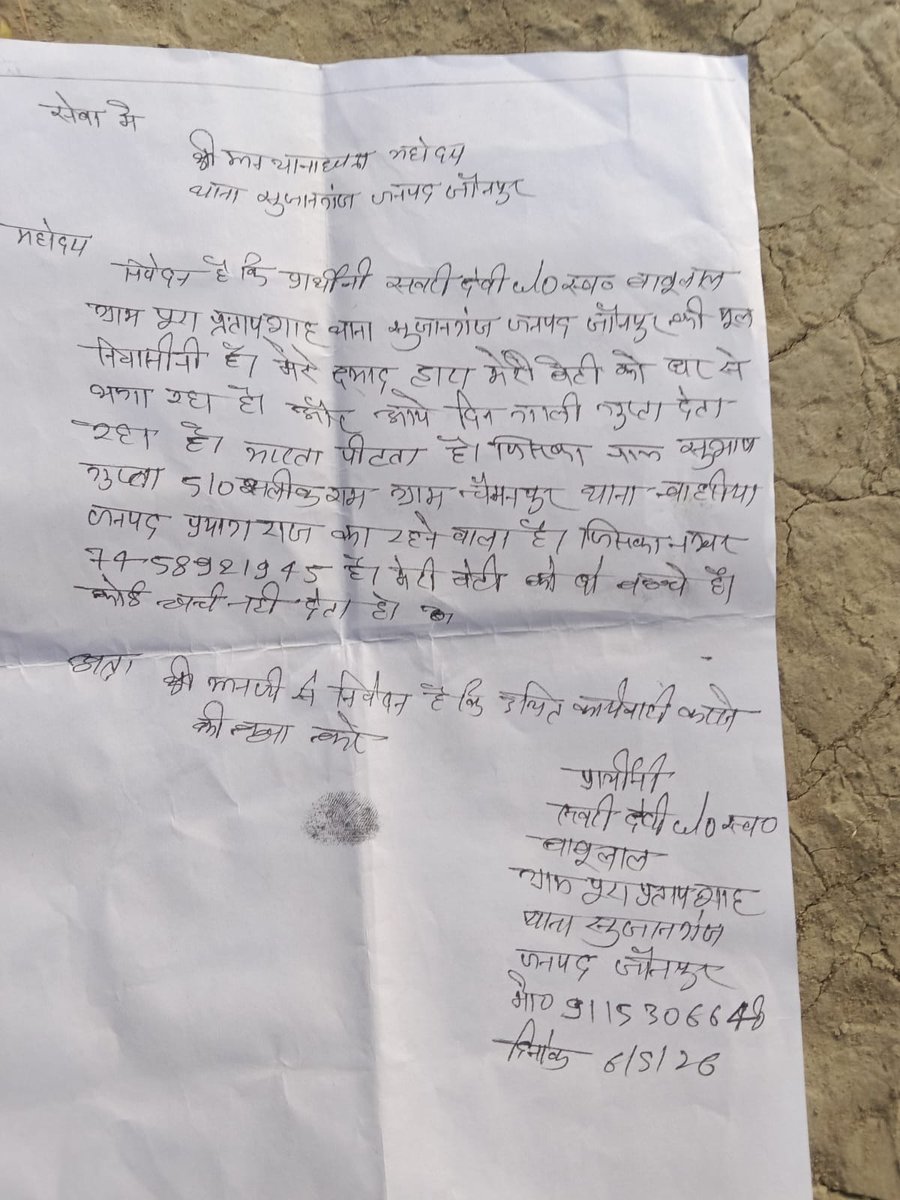 सेवा मे
श्री मान थानाध्यक्ष महोदय
थाना सुजानगंज जनपद जौनपुर
महोदय
निवेदन है कि प्रार्थीनी देवी w/o स्व० बाबूलाल
ग्राम पूरा प्रतापशाह थाना सुजानगंज जनपद जौनपुर की मूल
निवासीनी है। मेरे दमाद द्वारा मेरी बेटी को घर से
भगा रहा है। और आये दिन गाली गुप्ता देता
रहा है। मारता पीटता है। जिसका नाम सुभाष
गुप्ता S/O सलीकराम ग्राम चैमनपुर थाना
जनपद प्रयागराज का रहने वाला है। जिसका नम्बर
7458921945 है। मेरी बेटी को दो बच्चे है।
कोई खर्चा नही देता है।
अतः
श्री मानजी से निवेदन है कि उचित कार्यवाही करने
की कृपा करे
प्रार्थीनी
देवी w/o स्व०
बाबूलाल
ग्राम पूरा प्रतापशाह
थाना सुजानगंज
जनपद जौनपुर
मो० 9115306648
दिनांक 6/5/26